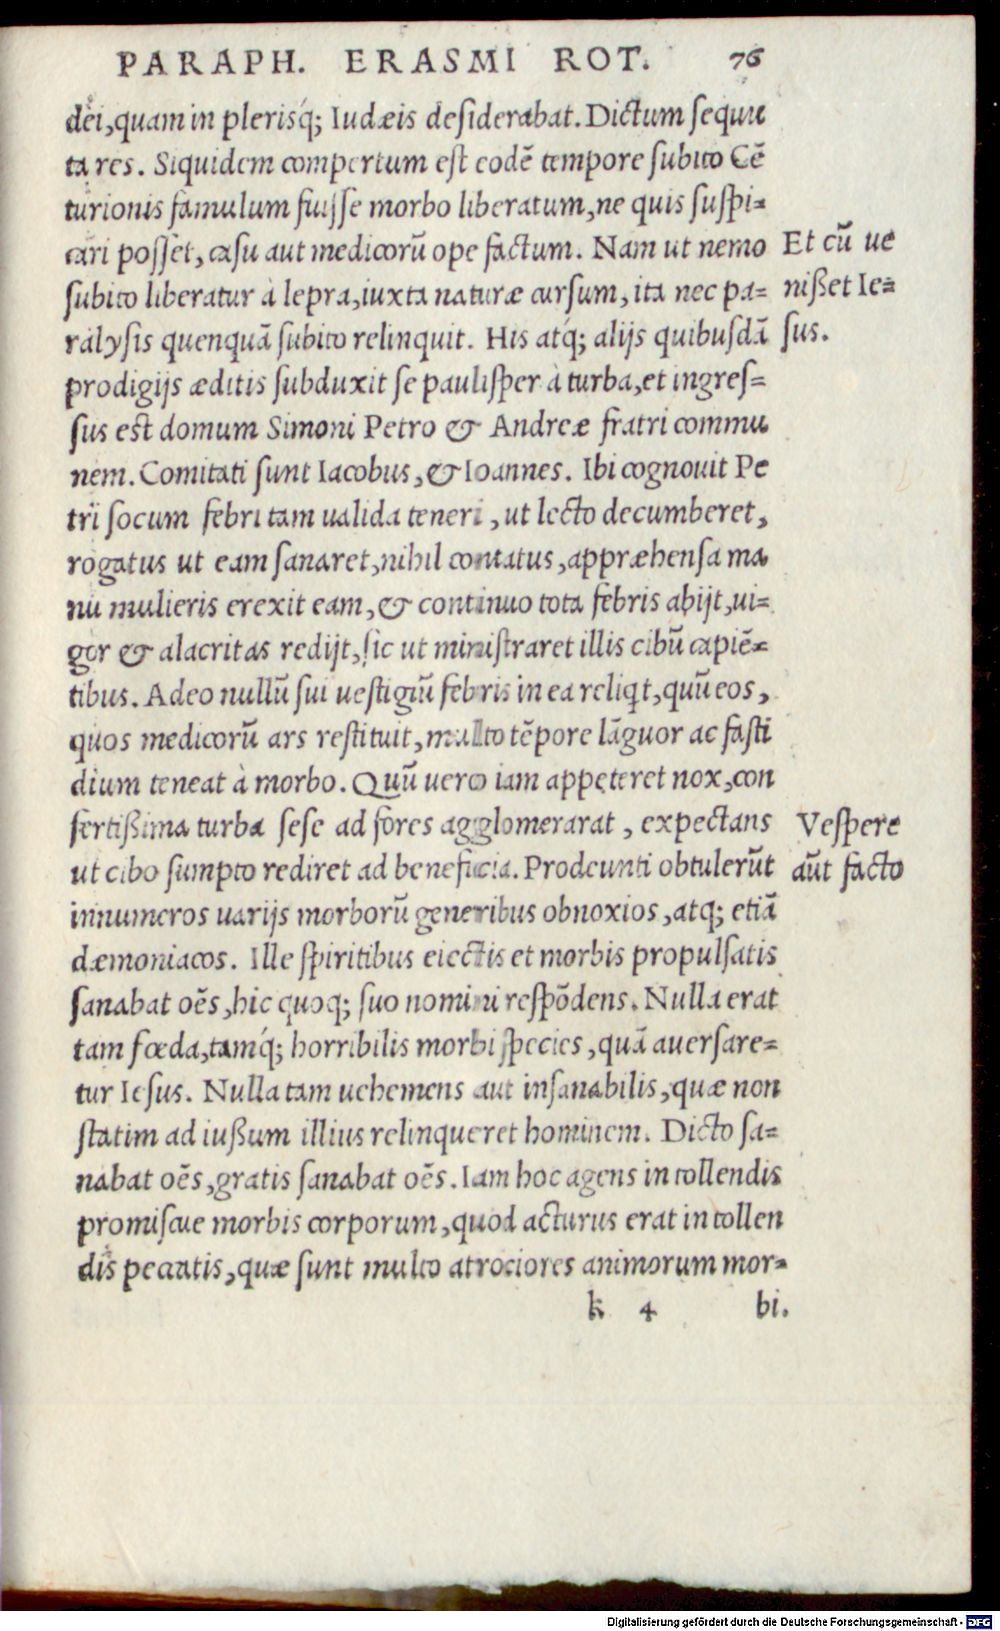 PARAPH. ERASMI ROT. 76
dei, quam in plerisq́; Iudæis desiderabat. Dictum sequu
ta res. Siquidem compertum est eodē tempore subito Cē
turionis famulum fuisse morbo liberatum, ne quis suspi=
cari posset, casu aut medicorū ope factum. Nam ut nemo
subito liberatur à lepra, iuxta naturæ cursum, ita nec pa=
ralysis quenquā subito relinquit. His atq́; alijs quibusdā
prodigijs æditis subduxit se paulisper à turba, et ingres=
sus est domum Simoni Petro & Andreæ fratri commu
nem. Comitati sunt Iacobus, & Ioannes. Ibi cognouit Pe
tri socum febri tam ualida teneri, ut lecto decumberet,
rogatus ut eam sanaret, nihil contatus, appræhensa ma
nu mulieris erexit eam, & continuo tota febris abijt, ui=
gor & alacritas redijt, sic ut ministraret illis cibū capiē=
tibus. Adeo nullū sui uestigiū febris in ea reliqt, quū eos,
quos medicorū ars restituit, multo tēpore lāguor ac fasti
dium teneat à morbo. Quū uero iam appeteret nox, con
fertißima turba sese ad fores agglomerarat, expectans
ut cibo sumpto rediret ad beneficia. Prodeunti obtulerūt
innumeros uarijs morborū generibus obnoxios, atq; etiā
dæmoniacos. Ille spiritibus eiectis et morbis propulsatis
sanabat oēs, hic quoq; suo nomini respōdens. Nulla erat
tam fœda, tamq́; horribilis morbi species, quā auersare=
tur Iesus. Nulla tam uehemens aut insanabilis, quæ non
statim ad iußum illius relinqueret hominem. Dicto sa=
nabat oēs, gratis sanabat oēs. Iam hoc agens in tollendis
promiscue morbis corporum, quod acturus erat in tollen
dis peccatis, quæ sunt multo atrociores animorum mor=
k 4 bi.
Et cū ue
nißet Ie=
sus.
Vespere
aūt facto
Digitalisierung gefördert durch die Deutsche Forschungsgemeinschaft - DFG